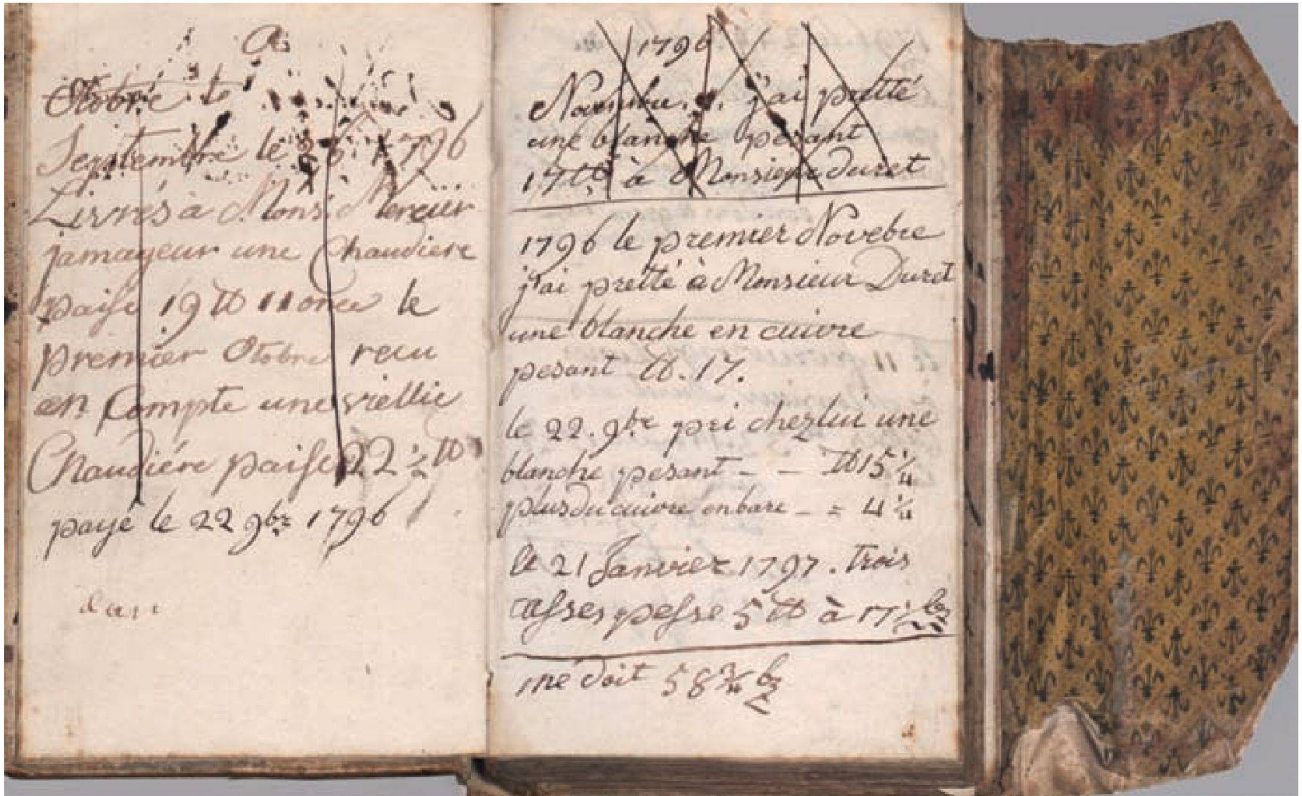 Otobre le
Septembre le 26 1796
Livrés à Mons. Mercier
jamageur une Chaudiere
paise 19 ℔ 11 once le
premier Otobre recu
en Compte une viellie
Chaudiére paise 22 ½ ℔
payé le 22 9bre 1796
dan
1796
Novembre. j'ai pretté
une blanche pesant
17 ℔ à Monsieur Duret
1796 le premier Novebre
j'ai pretté à Monsieur Duret
une blanche en cuivre
pesant ℔. 17.
le 22. 9bre pri chez lui une
blanche pesant - - ℔ 15 ¼
plus du cuivre en bare - = 4 ¼
le 21 Janvier 1797. trois
casses pesse 5 ℔ à 17 ½ bz
me doit 58 ¾ bz